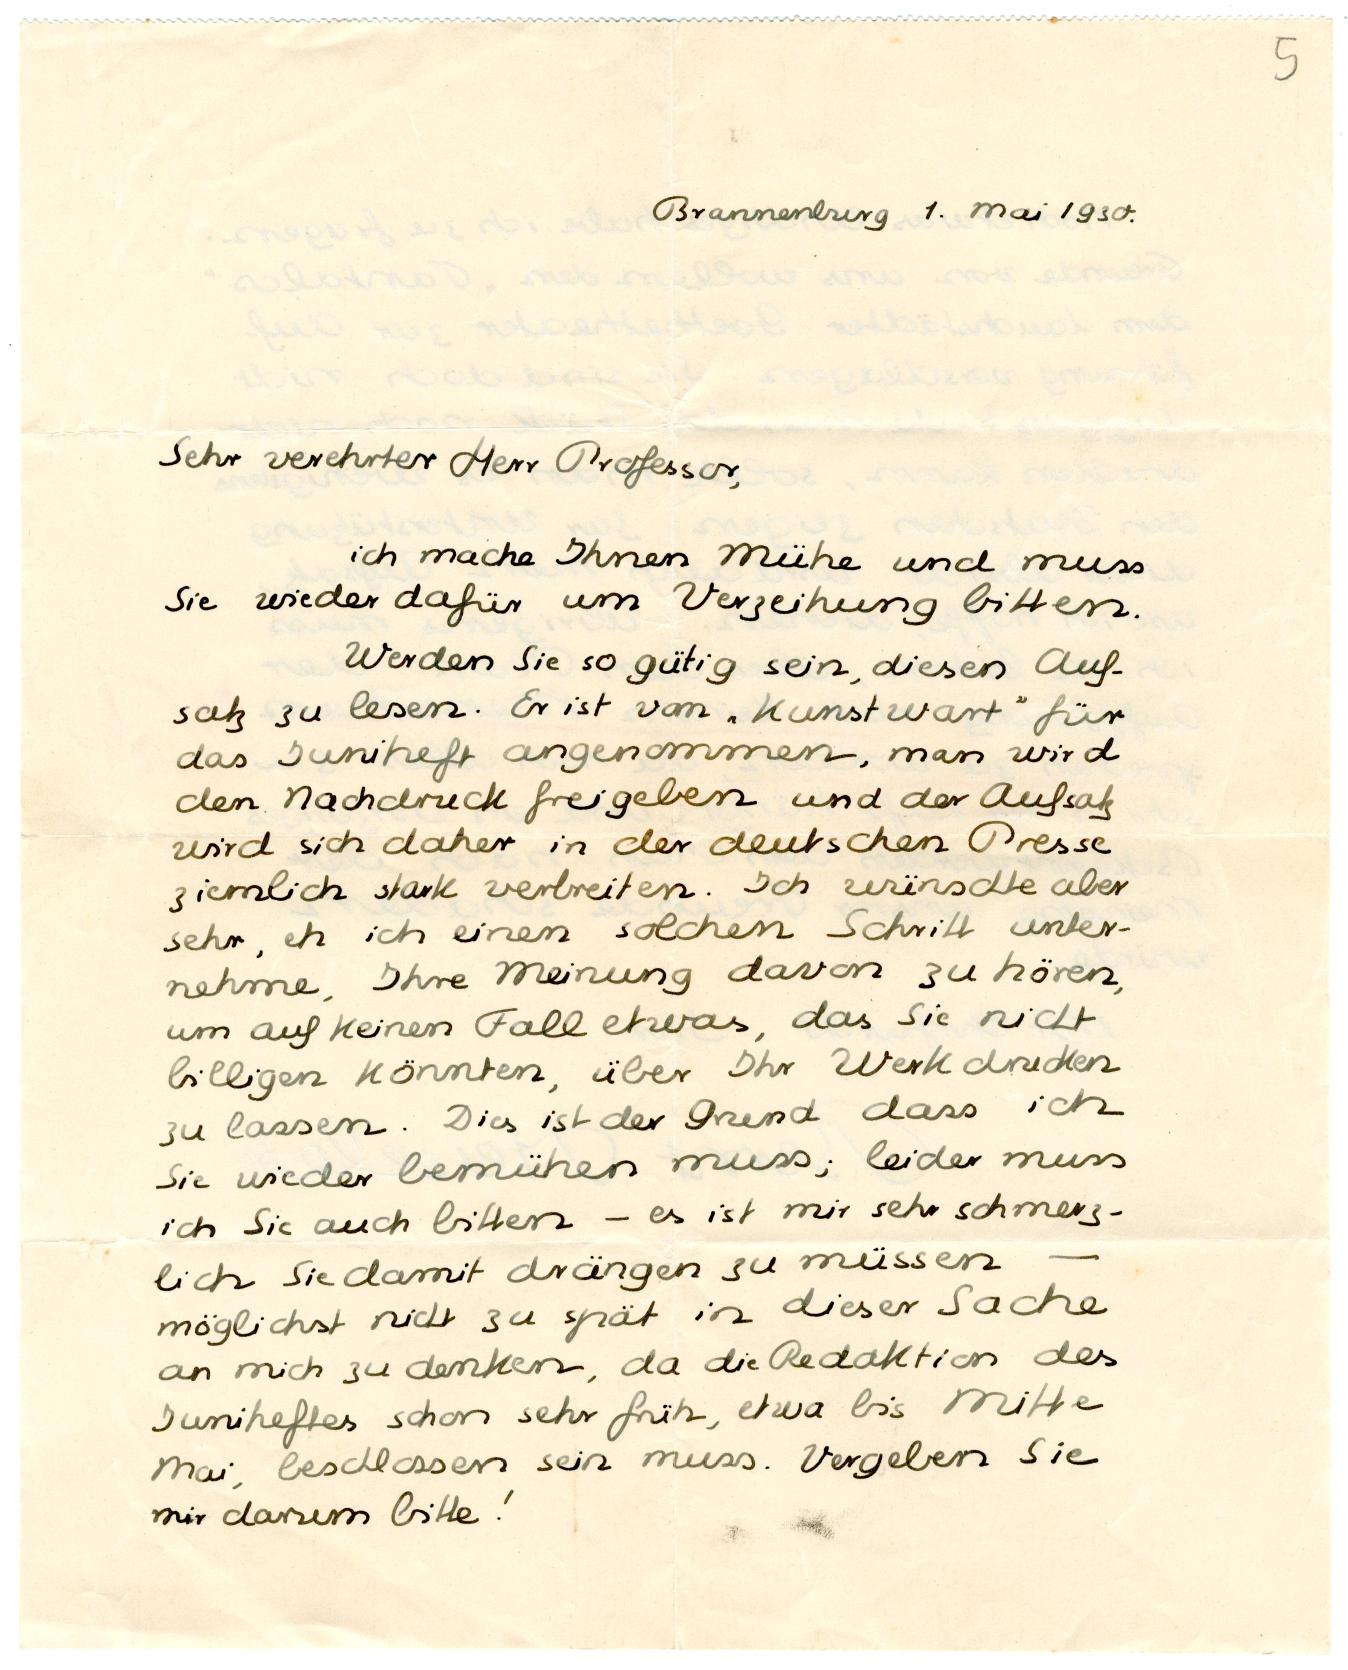 5
Brannenburg 1. Mai 1930.
Sehr verehrter Herr Professor,
ich mache Ihnen Mühe und muss
Sie wieder dafür um Verzeihung bitten.
Werden Sie so gütig sein, diesen Auf-
satz zu lesen. Er ist vom „Kunstwart" für
das Juniheft angenommen, man wird
den Nachdruck freigeben und der Aufsatz
wird sich daher in der deutschen Presse
ziemlich stark verbreiten. Ich wünschte aber
sehr, eh ich einen solchen Schritt unter-
nehme, Ihre Meinung davon zu hören,
um auf keinen Fall etwas, das Sie nicht
billigen könnten, über Ihr Werk drucken
zu lassen. Dies ist der Grund dass ich
Sie wieder bemühen muss; leider muss
ich Sie auch bitten – es ist mir sehr schmerz-
lich Sie damit drängen zu müssen –
möglichst nicht zu spät in dieser Sache
an mich zu denken, da die Redaktion des
Juniheftes schon sehr früh, etwa bis Mitte
Mai, beschlossen sein muss. Vergeben Sie
mir darum bitte!